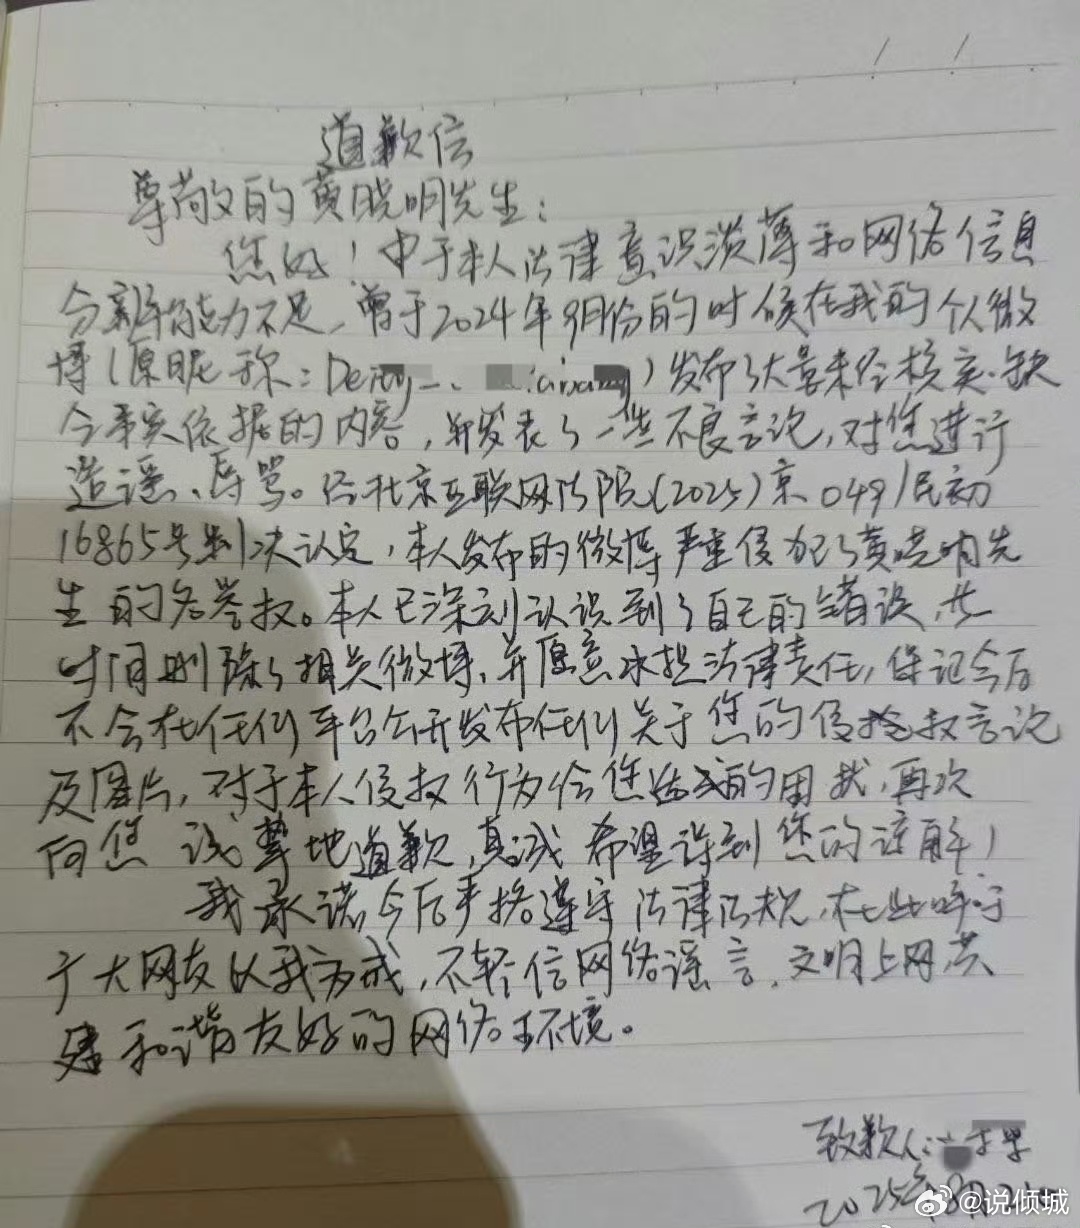 道歉信
尊敬的黄晓明先生：
您好！由于本人法律意识淡薄和网络信息
分辨能力不足，曾于2024年9月份的时候在我的个人微
博（原昵称：Deity_）发布了大量未经核实、缺
乏事实依据的内容，并发表了一些不良言论，对您进行
造谣、辱骂。经北京互联网法院（2025）京0491民初
16865号判决认定，本人发布的微博严重侵犯了黄晓明先
生的名誉权。本人已深刻认识到了自己的错误，
时间删除了相关微博，并愿意承担法律责任，保证今后
不会在任何平台公开发布任何关于您的侵权言论
及图片，对于本人侵权行为给您造成的困扰，再次
向您诚挚地道歉，真诚希望得到您的谅解！
我承诺今后严格遵守法律法规，在此呼吁
广大网友以我为戒，不轻信网络谣言，文明上网共
建和谐友好的网络环境。
致歉人：
2025年
@说倾城